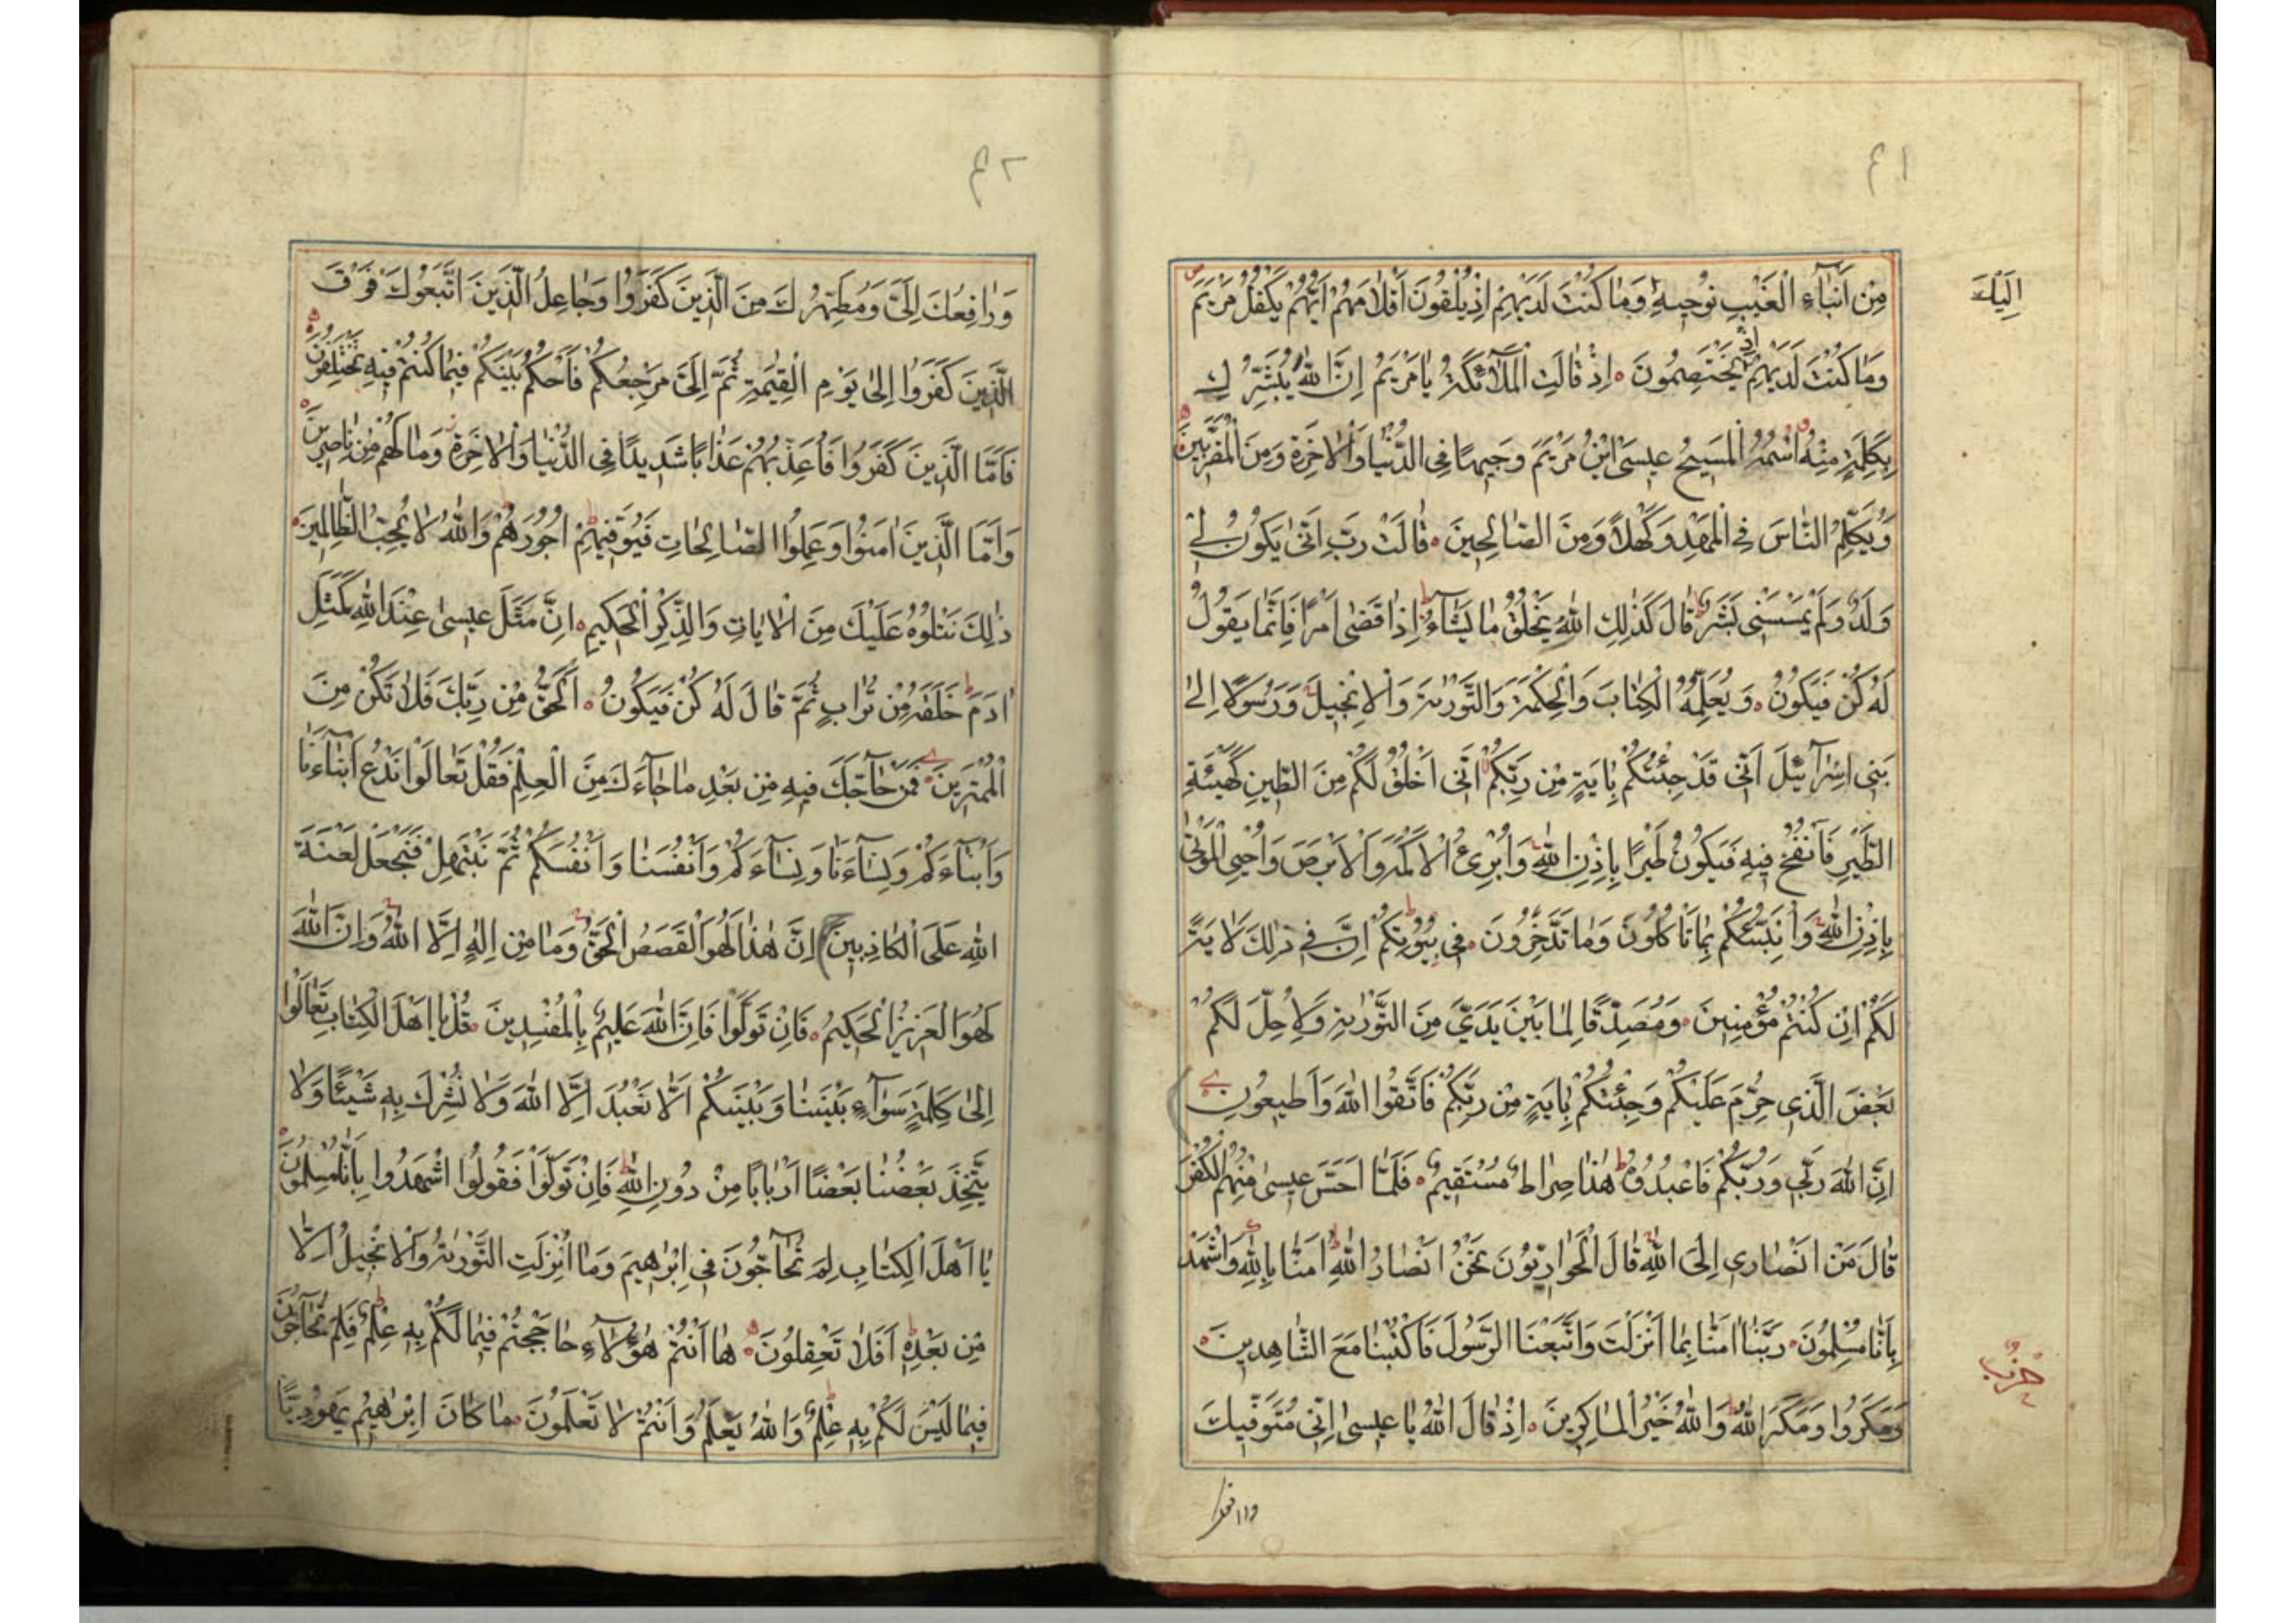 ٤١
اِلَيْكَ
مِنْ اَنْبَآءِ الْغَيْبِ نُوْحِيهِ وَمَا كُنْتَ لَدَيْهِمْ اِذْ يُلْقُونَ اَقْلَامَهُمْ اَيُّهُمْ يَكْفُلُ مَرْيَمَ
وَمَا كُنْتَ لَدَيْهِمْ اِذْ يَخْتَصِمُونَ اِذْ قَالَتِ الْمَلٰٓائِكَةُ يَا مَرْيَمُ اِنَّ اللّٰهَ يُبَشِّرُكِ
بِكَلِمَةٍ مِنْهُ اسْمُهُ الْمَسِيحُ عِيسَى ابْنُ مَرْيَمَ وَجِيهًا فِى الدُّنْيَا وَالْاٰخِرَةِ وَمِنَ الْمُقَرَّبِينَ
وَيُكَلِّمُ النَّاسَ فِى الْمَهْدِ وَكَهْلًا وَمِنَ الصَّالِحِينَ قَالَتْ رَبِّ اَنّٰى يَكُونُ لِى
وَلَدٌ وَلَمْ يَمْسَسْنِى بَشَرٌ قَالَ كَذٰلِكِ اللّٰهُ يَخْلُقُ مَا يَشَآءُ اِذَا قَضٰى اَمْرًا فَاِنَّمَا يَقُولُ
لَهُ كُنْ فَيَكُونُ وَيُعَلِّمُهُ الْكِتَابَ وَالْحِكْمَةَ وَالتَّوْرٰيةَ وَالْاِنْجِيلَ وَرَسُولًا اِلٰى
بَنِى اِسْرَآئِيلَ اَنِّى قَدْ جِئْتُكُمْ بِاٰيَةٍ مِنْ رَبِّكُمْ اَنِّى اَخْلُقُ لَكُمْ مِنَ الطِّينِ كَهَيْئَةِ
الطَّيْرِ فَاَنْفُخُ فِيهِ فَيَكُونُ طَيْرًا بِاِذْنِ اللّٰهِ وَاُبْرِئُ الْاَكْمَهَ وَالْاَبْرَصَ وَاُحْيِى الْمَوْتٰى
بِاِذْنِ اللّٰهِ وَاُنَبِّئُكُمْ بِمَا تَاْكُلُونَ وَمَا تَدَّخِرُونَ فِى بُيُوتِكُمْ اِنَّ فِى ذٰلِكَ لَاٰيَةً
لَكُمْ اِنْ كُنْتُمْ مُؤْمِنِينَ وَمُصَدِّقًا لِمَا بَيْنَ يَدَىَّ مِنَ التَّوْرٰيةِ وَلِاُحِلَّ لَكُمْ
بَعْضَ الَّذِى حُرِّمَ عَلَيْكُمْ وَجِئْتُكُمْ بِاٰيَةٍ مِنْ رَبِّكُمْ فَاتَّقُوا اللّٰهَ وَاَطِيعُونِ
اِنَّ اللّٰهَ رَبِّى وَرَبُّكُمْ فَاعْبُدُوهُ هٰذَا صِرَاطٌ مُسْتَقِيمٌ فَلَمَّا اَحَسَّ عِيسٰى مِنْهُمُ الْكُفْرَ
قَالَ مَنْ اَنْصَارِى اِلَى اللّٰهِ قَالَ الْحَوَارِيُّونَ نَحْنُ اَنْصَارُ اللّٰهِ اٰمَنَّا بِاللّٰهِ وَاشْهَدْ
بِاَنَّا مُسْلِمُونَ رَبَّنَا اٰمَنَّا بِمَا اَنْزَلْتَ وَاتَّبَعْنَا الرَّسُولَ فَاكْتُبْنَا مَعَ الشَّاهِدِينَ
حزب
وَمَكَرُوا وَمَكَرَ اللّٰهُ وَاللّٰهُ خَيْرُ الْمَاكِرِينَ اِذْ قَالَ اللّٰهُ يَا عِيسٰى اِنِّى مُتَوَفِّيكَ
٤٢
وَرَافِعُكَ اِلَىَّ وَمُطَهِّرُكَ مِنَ الَّذِينَ كَفَرُوا وَجَاعِلُ الَّذِينَ اتَّبَعُوكَ فَوْقَ
الَّذِينَ كَفَرُوا اِلٰى يَوْمِ الْقِيٰمَةِ ثُمَّ اِلَىَّ مَرْجِعُكُمْ فَاَحْكُمُ بَيْنَكُمْ فِيمَا كُنْتُمْ فِيهِ تَخْتَلِفُونَ
فَاَمَّا الَّذِينَ كَفَرُوا فَاُعَذِّبُهُمْ عَذَابًا شَدِيدًا فِى الدُّنْيَا وَالْاٰخِرَةِ وَمَا لَهُمْ مِنْ نَاصِرِينَ
وَاَمَّا الَّذِينَ اٰمَنُوا وَعَمِلُوا الصَّالِحَاتِ فَيُوَفِّيهِمْ اُجُورَهُمْ وَاللّٰهُ لَا يُحِبُّ الظَّالِمِينَ
ذٰلِكَ نَتْلُوهُ عَلَيْكَ مِنَ الْاٰيَاتِ وَالذِّكْرِ الْحَكِيمِ اِنَّ مَثَلَ عِيسٰى عِنْدَ اللّٰهِ كَمَثَلِ
اٰدَمَ خَلَقَهُ مِنْ تُرَابٍ ثُمَّ قَالَ لَهُ كُنْ فَيَكُونُ اَلْحَقُّ مِنْ رَبِّكَ فَلَا تَكُنْ مِنَ
الْمُمْتَرِينَ فَمَنْ حَآجَّكَ فِيهِ مِنْ بَعْدِ مَا جَآءَكَ مِنَ الْعِلْمِ فَقُلْ تَعَالَوْا نَدْعُ اَبْنَآءَنَا
وَاَبْنَآءَكُمْ وَنِسَآءَنَا وَنِسَآءَكُمْ وَاَنْفُسَنَا وَاَنْفُسَكُمْ ثُمَّ نَبْتَهِلْ فَنَجْعَلْ لَعْنَةَ
اللّٰهِ عَلَى الْكَاذِبِينَ اِنَّ هٰذَا لَهُوَ الْقَصَصُ الْحَقُّ وَمَا مِنْ اِلٰهٍ اِلَّا اللّٰهُ وَاِنَّ اللّٰهَ
لَهُوَ الْعَزِيزُ الْحَكِيمُ فَاِنْ تَوَلَّوْا فَاِنَّ اللّٰهَ عَلِيمٌ بِالْمُفْسِدِينَ قُلْ يَا اَهْلَ الْكِتَابِ تَعَالَوْا
اِلٰى كَلِمَةٍ سَوَآءٍ بَيْنَنَا وَبَيْنَكُمْ اَلَّا نَعْبُدَ اِلَّا اللّٰهَ وَلَا نُشْرِكَ بِهِ شَيْئًا وَلَا
يَتَّخِذَ بَعْضُنَا بَعْضًا اَرْبَابًا مِنْ دُونِ اللّٰهِ فَاِنْ تَوَلَّوْا فَقُولُوا اشْهَدُوا بِاَنَّا مُسْلِمُونَ
يَا اَهْلَ الْكِتَابِ لِمَ تُحَآجُّونَ فِى اِبْرٰهِيمَ وَمَا اُنْزِلَتِ التَّوْرٰيةُ وَالْاِنْجِيلُ اِلَّا
مِنْ بَعْدِهِ اَفَلَا تَعْقِلُونَ هَا اَنْتُمْ هٰؤُلَآءِ حَاجَجْتُمْ فِيمَا لَكُمْ بِهِ عِلْمٌ فَلِمَ تُحَآجُّونَ
فِيمَا لَيْسَ لَكُمْ بِهِ عِلْمٌ وَاللّٰهُ يَعْلَمُ وَاَنْتُمْ لَا تَعْلَمُونَ مَا كَانَ اِبْرٰهِيمُ يَهُودِيًّا